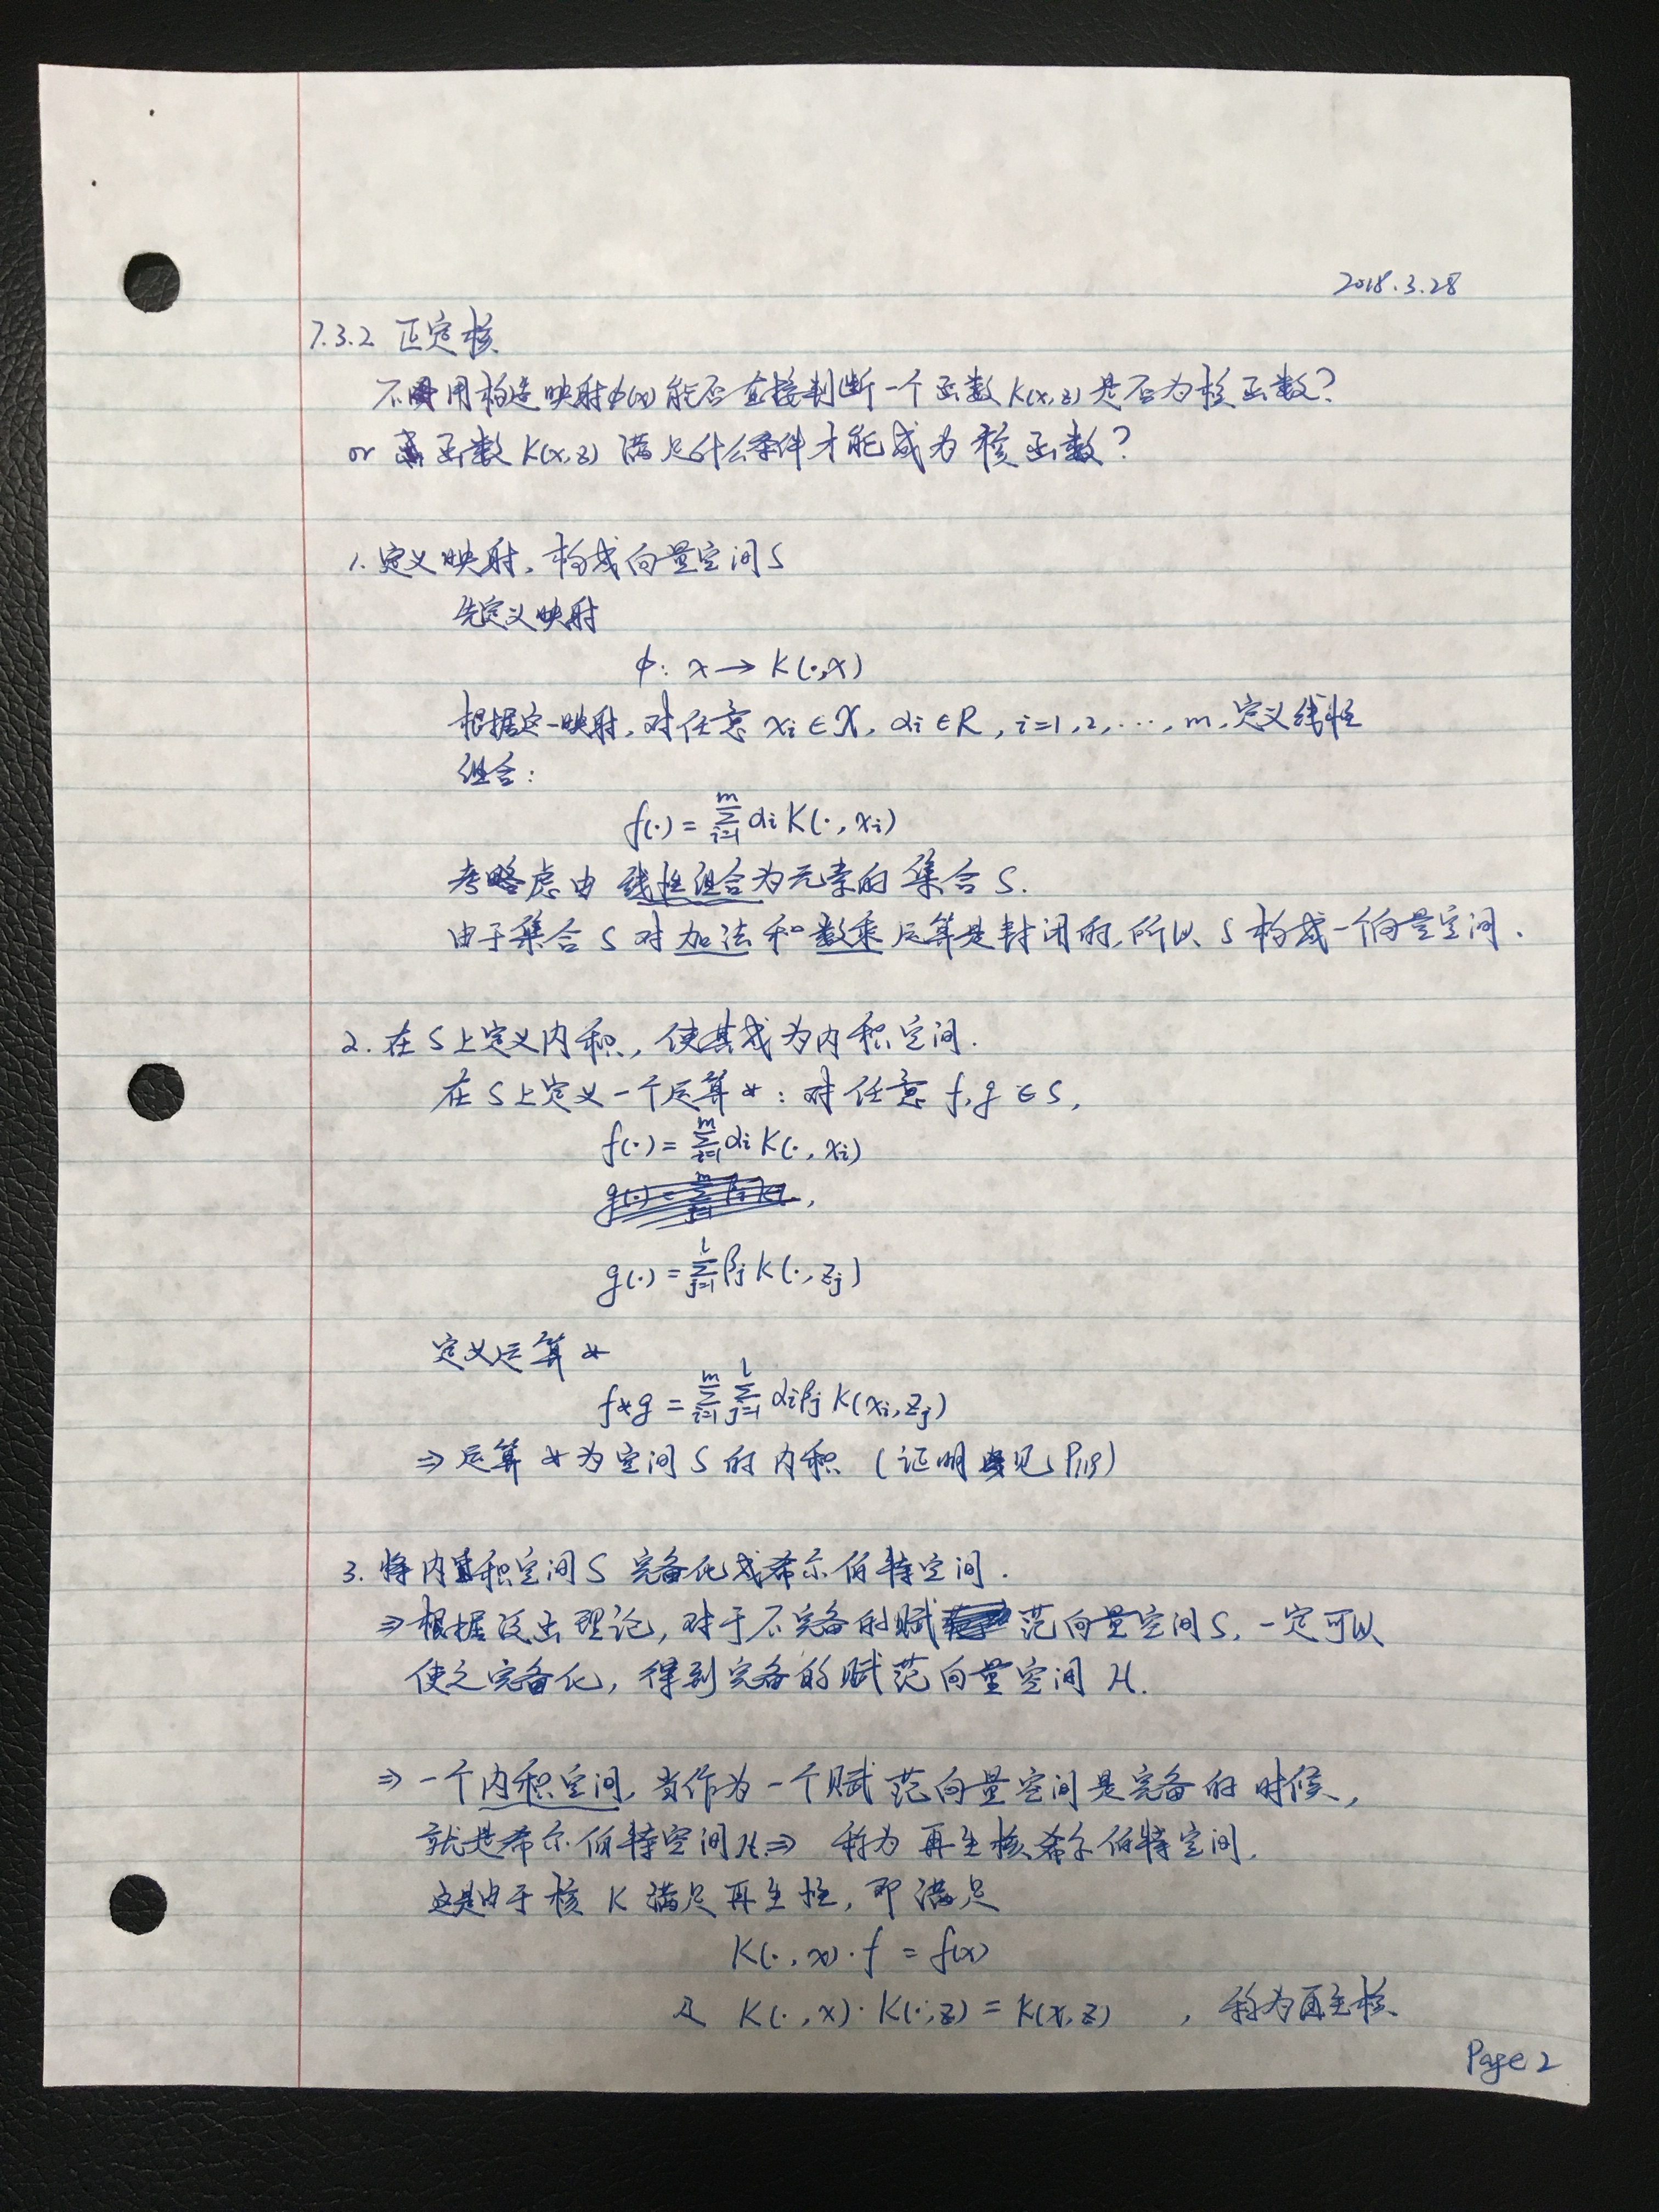 2018.3.28
7.3.2 正定核
不用构造映射φ(x)能否直接判断一个函数K(x,z)是否为核函数?
or 函数K(x,z) 满足什么条件才能成为核函数?
1. 定义映射,构成向量空间S
先定义映射
φ: x → K(·,x)
根据这一映射,对任意 xi ∈ X, αi ∈ R, i=1,2,⋯,m,定义线性
组合:
f(·) = ∑_{i=1}^{m} αi K(·,xi)
考虑由线性组合为元素的集合S.
由于集合S对加法和数乘运算是封闭的,所以S构成一个向量空间.
2. 在S上定义内积,使其成为内积空间.
在S上定义一个运算*: 对任意 f,g ∈ S,
f(·) = ∑_{i=1}^{m} αi K(·,xi)
g(·) = ∑_{j=1}^{l} βj K(·,zj)
定义运算*
f*g = ∑_{i=1}^{m} ∑_{j=1}^{l} αiβj K(xi,zj)
⇒ 运算*为空间S的内积 (证明见P119)
3. 将内积空间S完备化成希尔伯特空间.
⇒ 根据泛出理论,对于不完备的赋范向量空间S,一定可以
使之完备化,得到完备的赋范向量空间H.
⇒ 一个内积空间,当作为一个赋范向量空间是完备的时候,
就是希尔伯特空间H. ⇒ 称为再生核希尔伯特空间.
这是由于核K满足再生性,即满足
K(·,x)·f = f(x)
及 K(·,x)·K(·,z) = K(x,z) , 称为再生核
Page 2